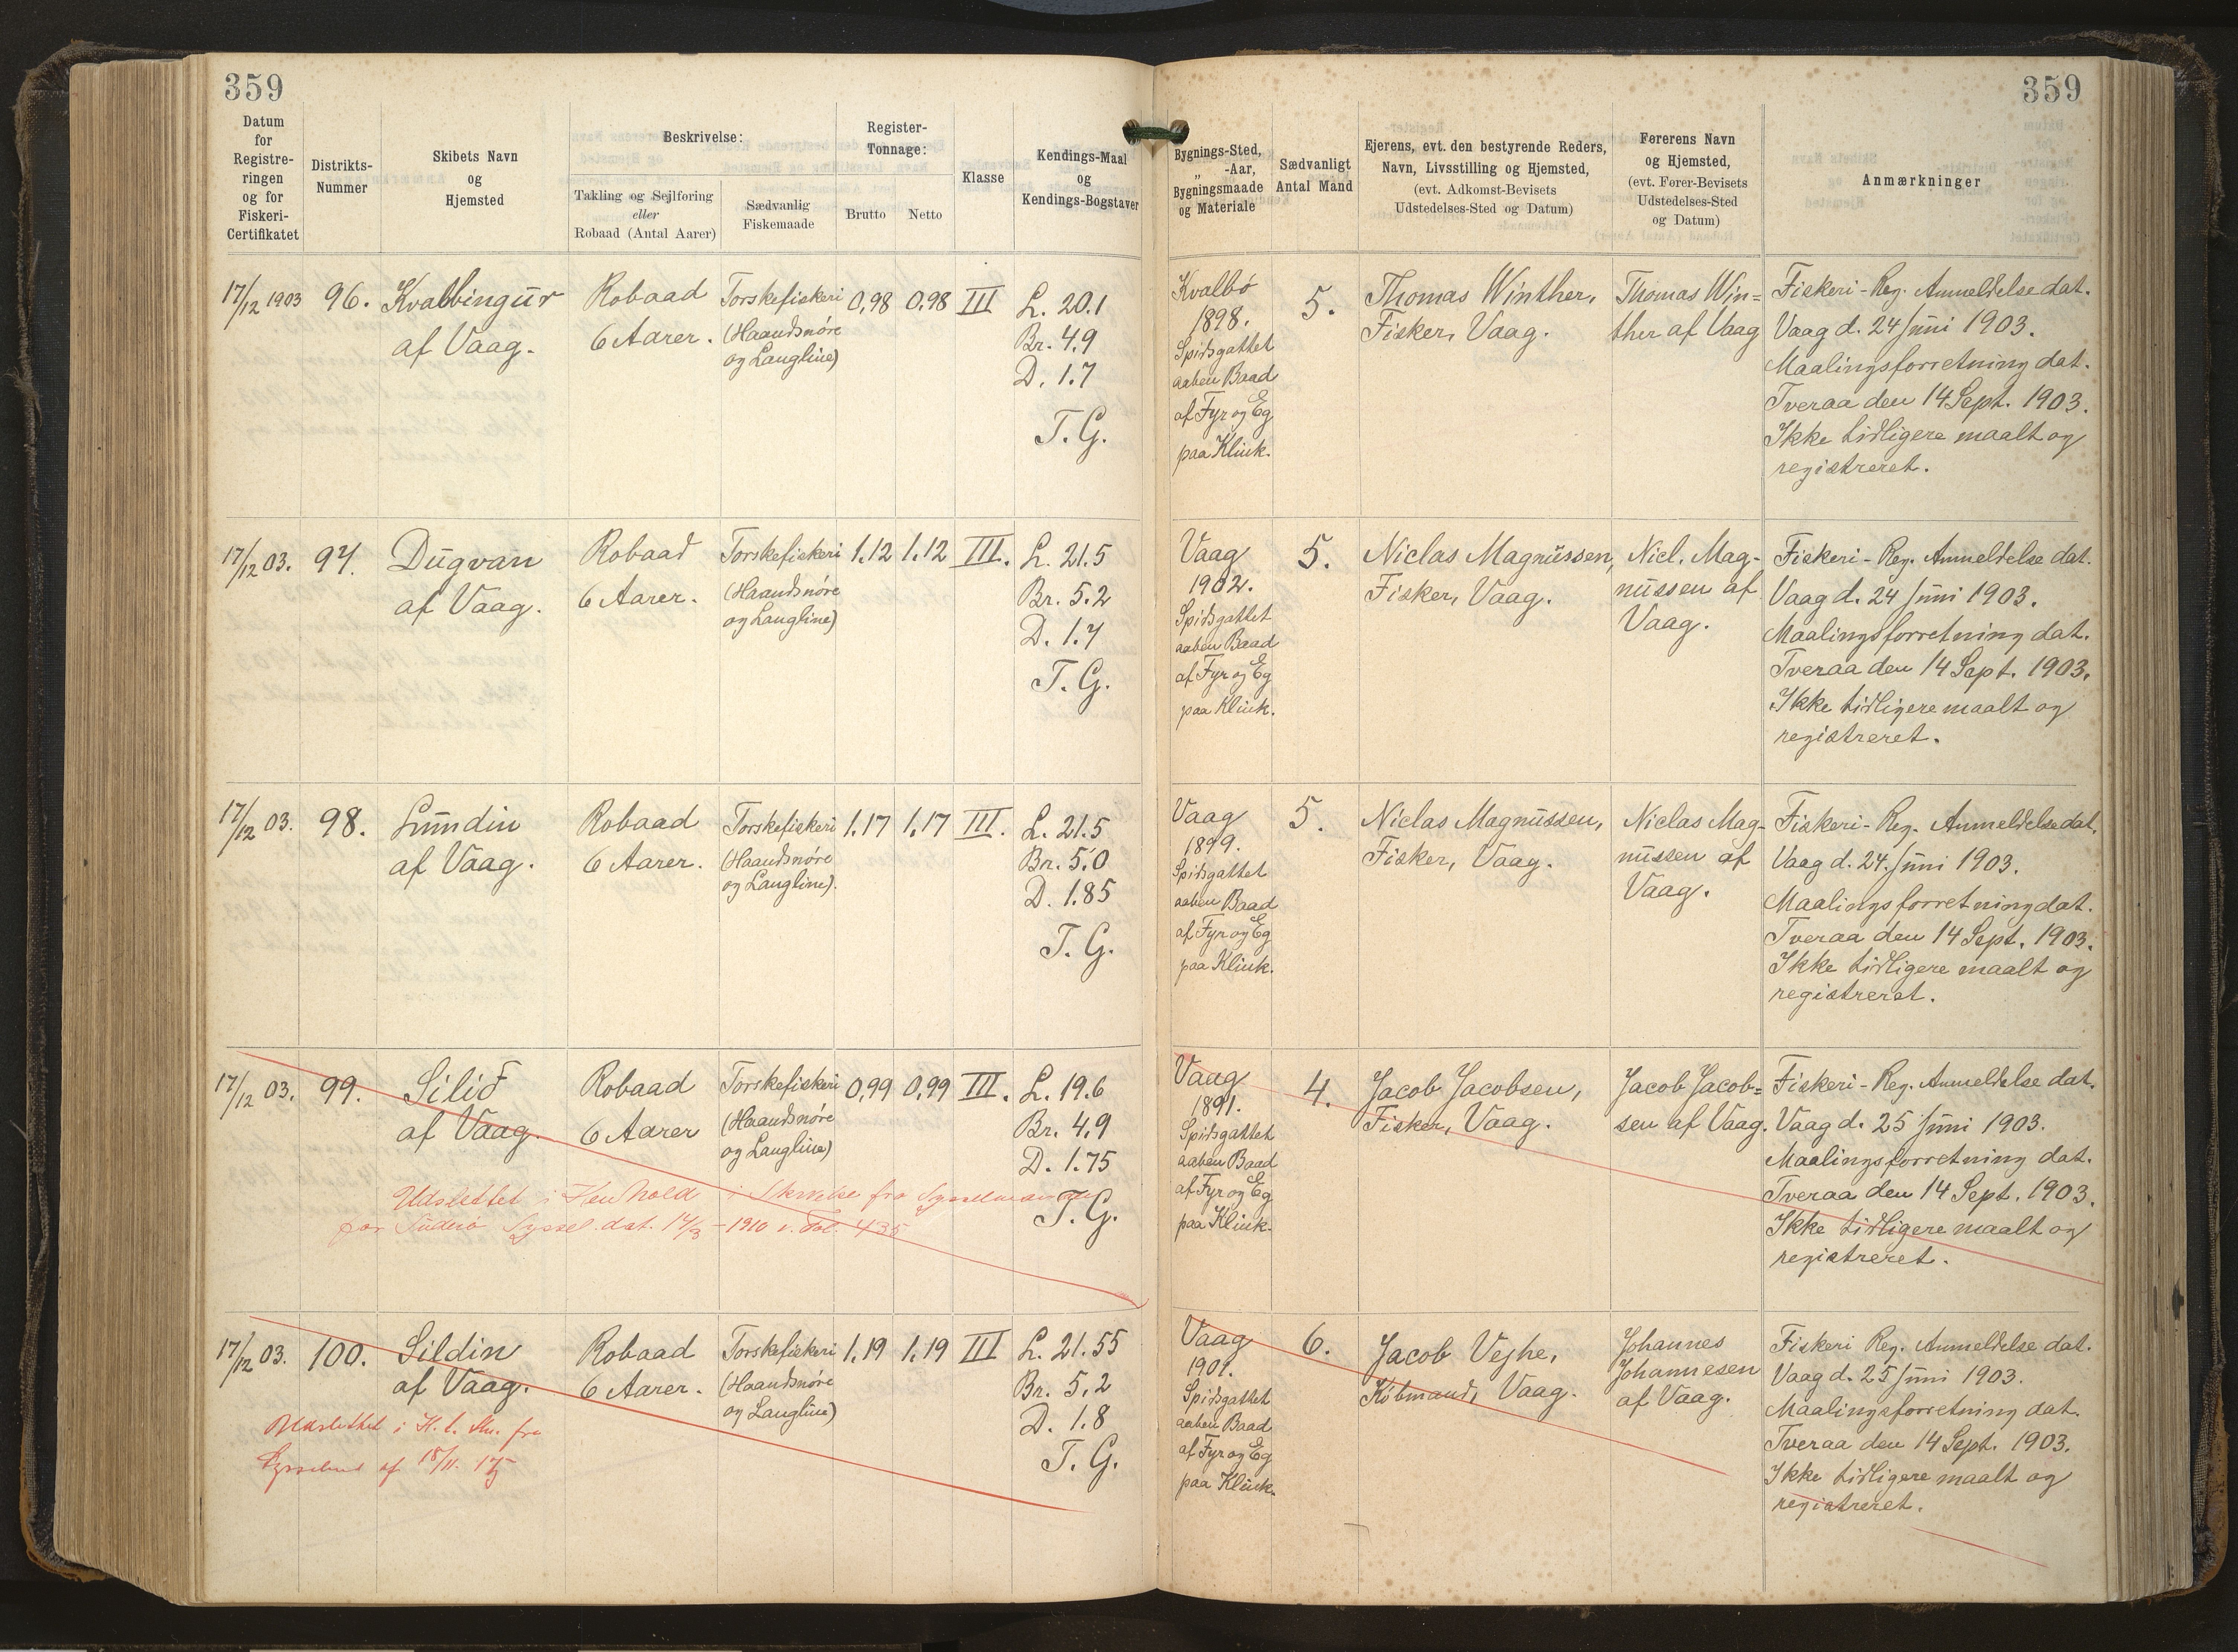 359
359
Datum
for
Registre-
ringen
og for
Fiskeri-
Certifikatet
Distrikts-
Nummer
Skibets Navn
og
Hjemsted
Beskrivelse:
Takling og Sejlføring
eller
Robaad (Antal Aarer)
Sædvanlig
Fiskemaade
Register-
Tonnage:
Brutto
Netto
Klasse
Kendings-Maal
og
Kendings-Bogstaver
Bygnings-Sted,
„ -Aar,
Bygningsmaade
og Materiale
Sædvanligt
Antal Mand
Ejerens, evt. den bestyrende Reders,
Navn, Livsstilling og Hjemsted,
(evt. Adkomst-Bevisets
Udstedelses-Sted og Datum)
Førerens Navn
og Hjemsted,
(evt. Fører-Bevisets
Udstedelses-Sted
og Datum)
Anmærkninger
17/12 1903
96.
Kvalbingur
af Vaag.
Robaad
6 Aarer.
Torskefiskeri
(Haandsnøre
og Langline)
0,98
0,98
III
L. 20.1
Br. 4.9
D. 1.7
T. G.
Kvalbø
1898.
Spidsgattet
aaben Baad
af Fyr og Eg
paa Klink.
5.
Thomas Winther,
Fisker, Vaag.
Thomas Win=
ther af Vaag
Fiskeri-Reg. Anmeldelse dat.
Vaag d. 24 Juni 1903.
Maalingsforretning dat.
Tveraa den 14 Sept. 1903.
Ikke tidligere maalt og
registreret.
17/12 03.
97.
Dugvan
af Vaag.
Robaad
6 Aarer.
Torskefiskeri
(Haandsnøre
og Langline)
1,12
1,12
III.
L. 21.5
Br. 5.2
D. 1.7
T. G.
Vaag
1902.
Spidsgattet
aaben Baad
af Fyr og Eg
paa Klink.
5.
Niclas Magnussen,
Fisker, Vaag.
Nicl. Mag-
nussen af
Vaag.
Fiskeri-Reg. Anmeldelse dat.
Vaag d. 24 Juni 1903.
Maalingsforretning dat.
Tveraa den 14 Sept. 1903.
Ikke tidligere maalt og
registreret.
17/12 03.
98.
Lundin
af Vaag.
Robaad
6 Aarer.
Torskefiskeri
(Haandsnøre
og Langline).
1,17
1,17
III.
L. 21.5
Br. 5.0
D. 1.85
T. G.
Vaag
1899.
Spidsgattet
aaben Baad
af Fyr og Eg
paa Klink.
5.
Niclas Magnussen,
Fisker, Vaag.
Niclas Mag-
nussen af
Vaag.
Fiskeri-Reg. Anmeldelse dat.
Vaag d. 24. Juni 1903.
Maalingsforretning dat.
Tveraa den 14 Sept. 1903.
Ikke tidligere maalt og
registreret.
17/12 03.
99.
Silið
af Vaag.
Robaad
6 Aarer
Torskefiskeri
(Haandsnøre
og Langline)
0,99
0,99
III.
L. 19.6
Br. 4.9
D. 1.75
T. G.
Udslettet i Henhold i Skrivelse fra Sysselmanden
paa Suderø Syssel dat. 14/3 - 1910 v. Fol. 435
Vaag
1891.
Spidsgattet
aaben Baad
af Fyr og Eg
paa Klink.
4.
Jacob Jacobsen,
Fisker, Vaag.
Jacob Jacob=
sen af Vaag.
Fiskeri-Reg. Anmeldelse dat.
Vaag d. 25 Juni 1903.
Maalingsforretning dat.
Tveraa den 14 Sept. 1903.
Ikke tidligere maalt og
registreret.
17/12 03.
100.
Sildin
af Vaag.
Robaad
6 Aarer.
Torskefiskeri
(Haandsnøre
og Langline)
1,19
1,19
III
L. 21.55
Br. 5,2
D. 1.8
T. G.
Udslettet i H. t. fra
af 18/11.
Vaag
1901.
Spidsgattet
aaben Baad
af Fyr og Eg
paa Klink.
6.
Jacob Vejhe,
Købmand, Vaag.
Johannes
Johannesen
af Vaag.
Fiskeri Reg. Anmeldelse dat.
Vaag d. 25 Juni 1903.
Maalingsforretning dat.
Tveraa den 14 Sept. 1903.
Ikke tidligere maalt og
registreret.